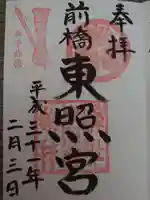 奉拝
前橋
東照宮
平成三十一年
二月三日